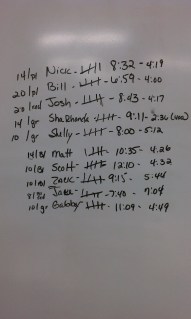 14/pl Nick - 8:32 - 4:19
20/pl Bill - 6:59 - 4:00
20/red Josh - 8:43 - 4:17
14/gr ShaRhonda - 9:11 - 2:36
10/gr Shelly - 8:00 - 5:12
14/ Matt 10:35 - 4:26
10/ Scott - 12:10 - 4:32
10/ Zack - 9:15 - 5:44
Jake - 7:40 - 7:04
10/gr Gabby - 11:09 - 4:49